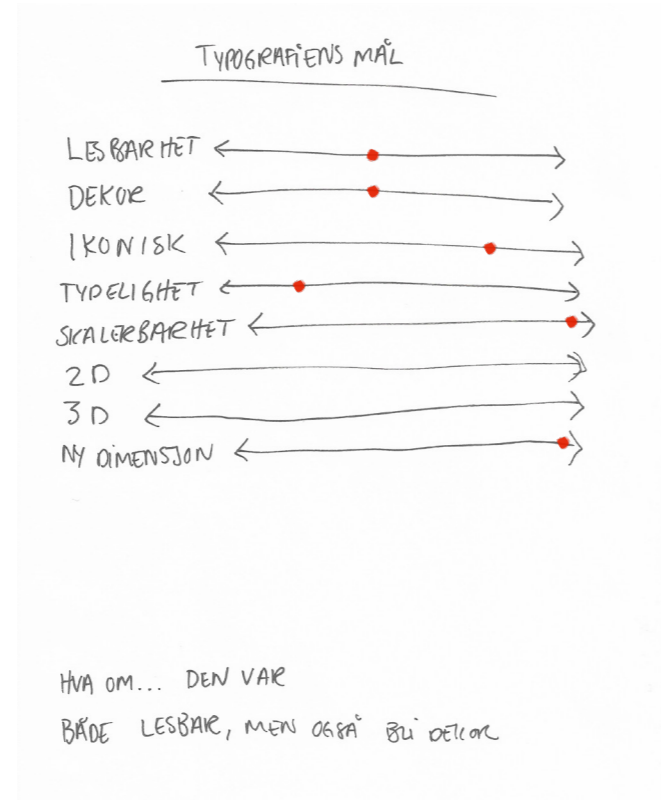 TYPOGRAFIENS MÅL
LESBARHET
DEKOR
IKONISK
TYDELIGHET
SKALERBARHET
2D
3D
NY DIMENSJON
HVA OM... DEN VAR
BÅDE LESBAR, MEN OGSÅ BLI DEKOR